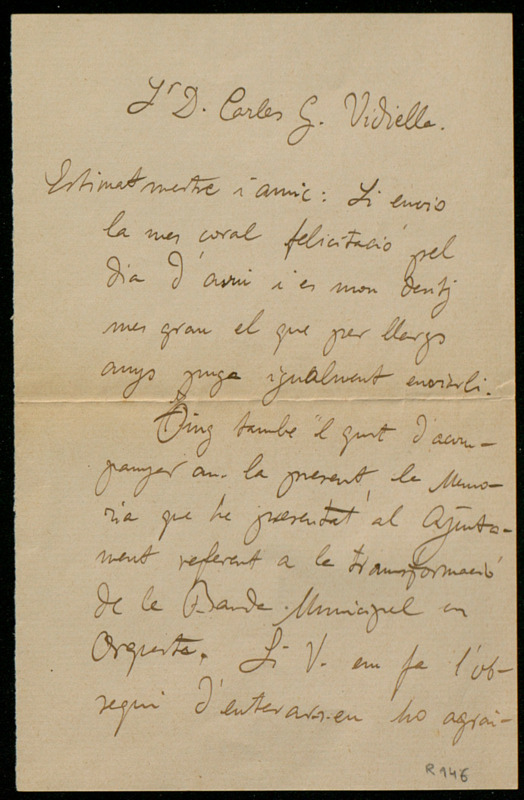 Sr D. Carles G. Vidiella.
Estimat mestre i amic: Li envio
la mes coral felicitació pel
dia d'avui i es mon desitj
mes gran el que per llargs
anys puga igualment enviarli.
Tinc també 'l gust d'acom-
panyar an la present, la Memo-
ria que he presentat al Ajunta-
ment referent a la transformació
de la Banda Municipal en
Orquesta. Si V. em fa l'ob-
sequi d'enterarsen ho agrai-
R 146